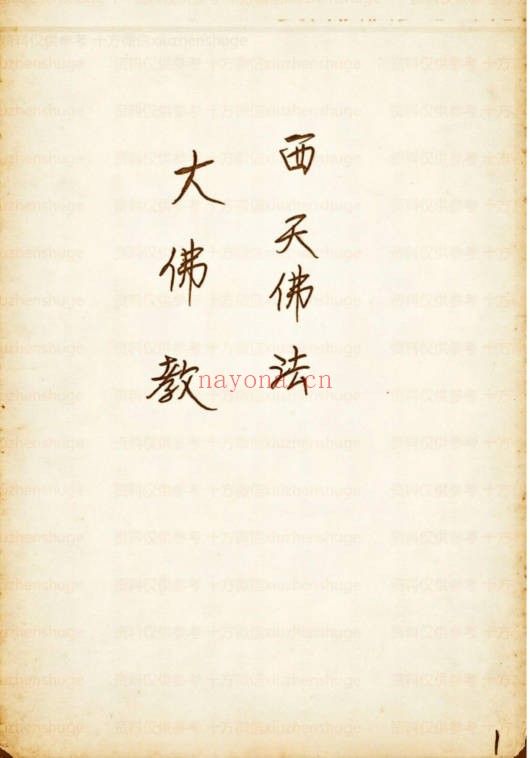 西天佛法
大佛教
nayona.cn
资料仅供参考 十方微信xiuzhenshuge
1